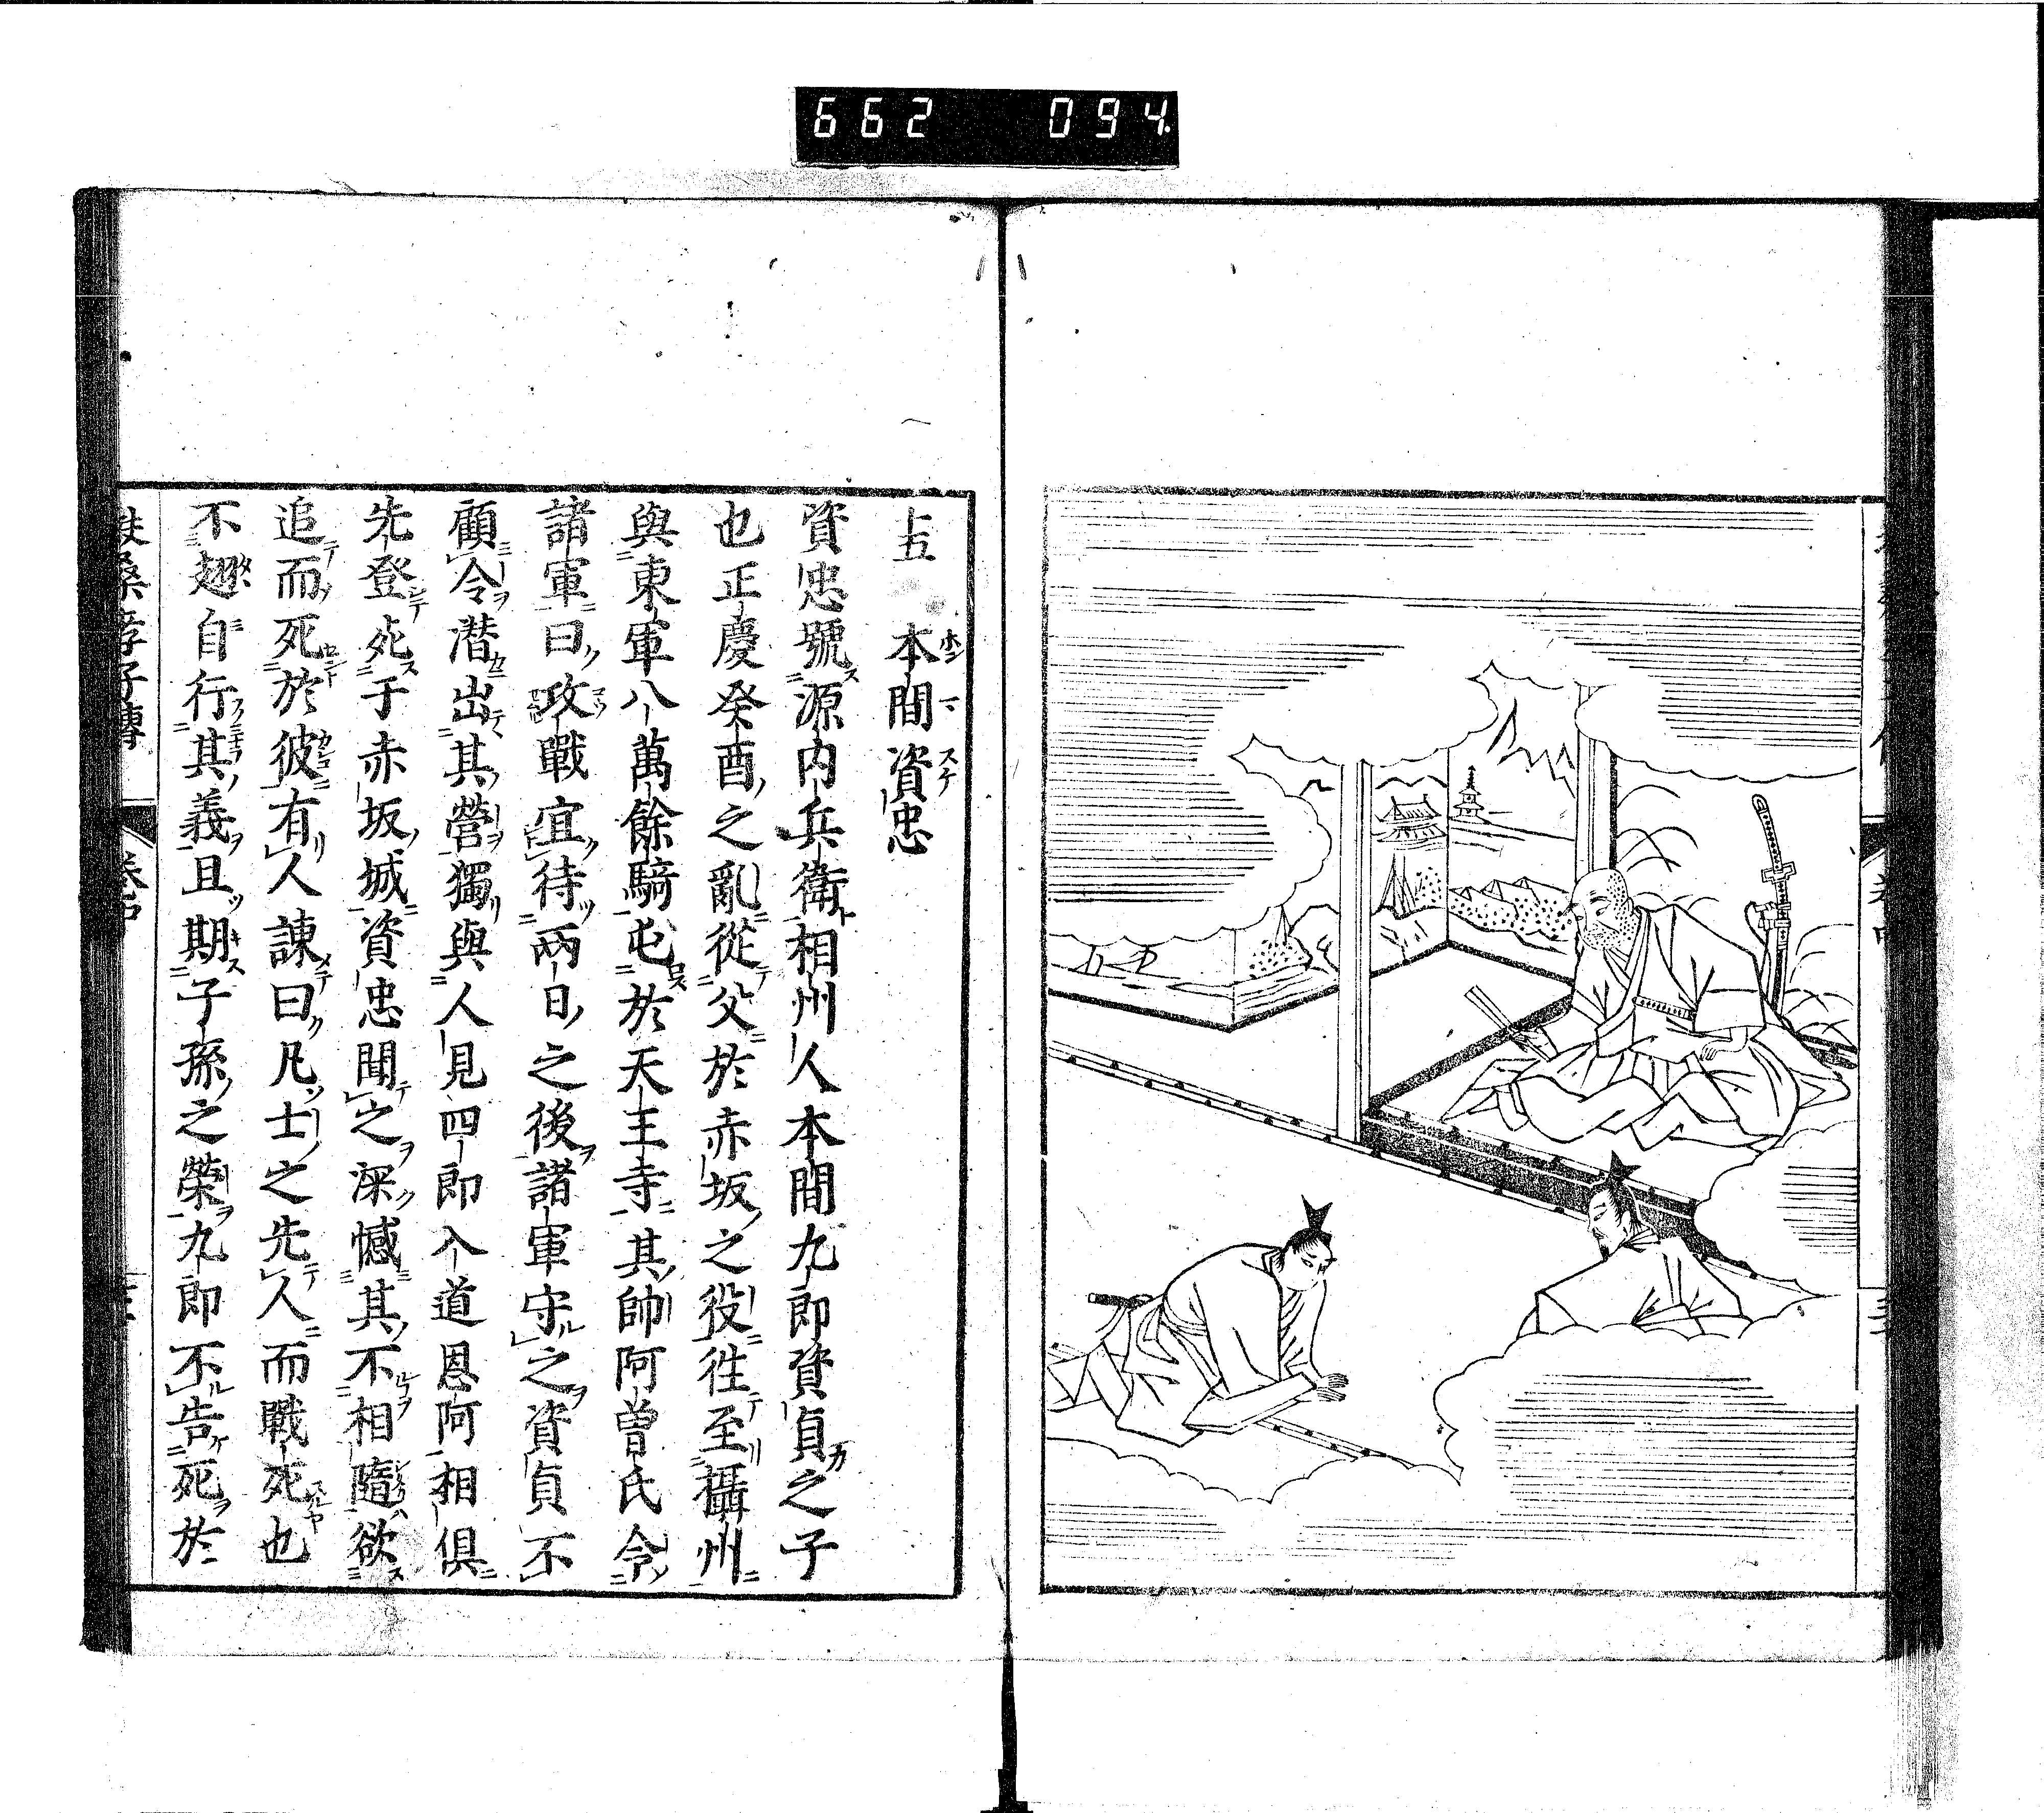 662 094
十五 本間資忠
資忠號源内兵衛相州人本間九郎資貞之子
也正慶癸酉之亂從父於赤坂之役徃至攝州
與東軍八萬餘騎屯於天王寺其帥阿曽氏令
諸軍曰攻戰宜待兩日之後諸軍守之資貞不
顧令潜出其營獨與人見四郎入道恩阿相俱
先登死于赤坂城資忠聞之深憾其不相隨欲
追而死於彼有人諫曰凡士之先人而戰死也
不翅自行其義且期子孫之榮九郎不告死於
扶桑孝子傳